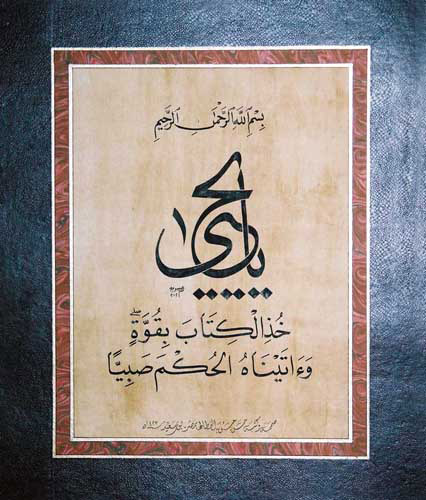 بِسْمِ ٱللَّهِ ٱلرَّحْمَٰنِ ٱلرَّحِيمِ
يا يحيى
خُذِ الْكِتَابَ بِقُوَّةٍ ۖ
وَءَاتَيْنَاهُ الْحُكْمَ صَبِيًّا